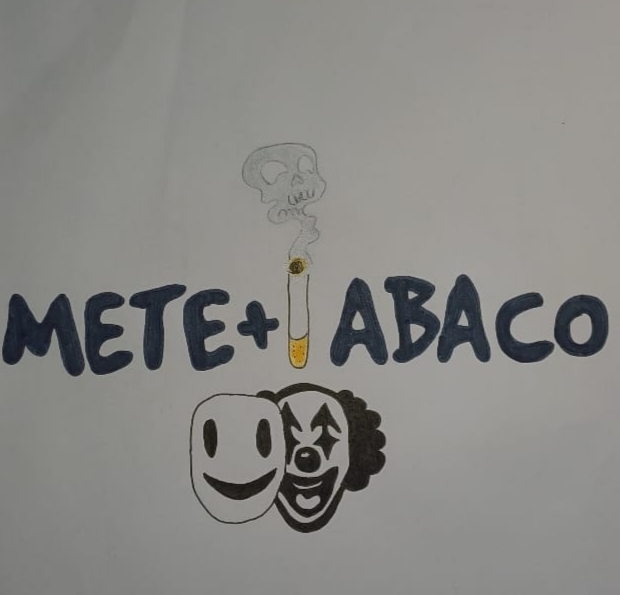 METE+ ABACO